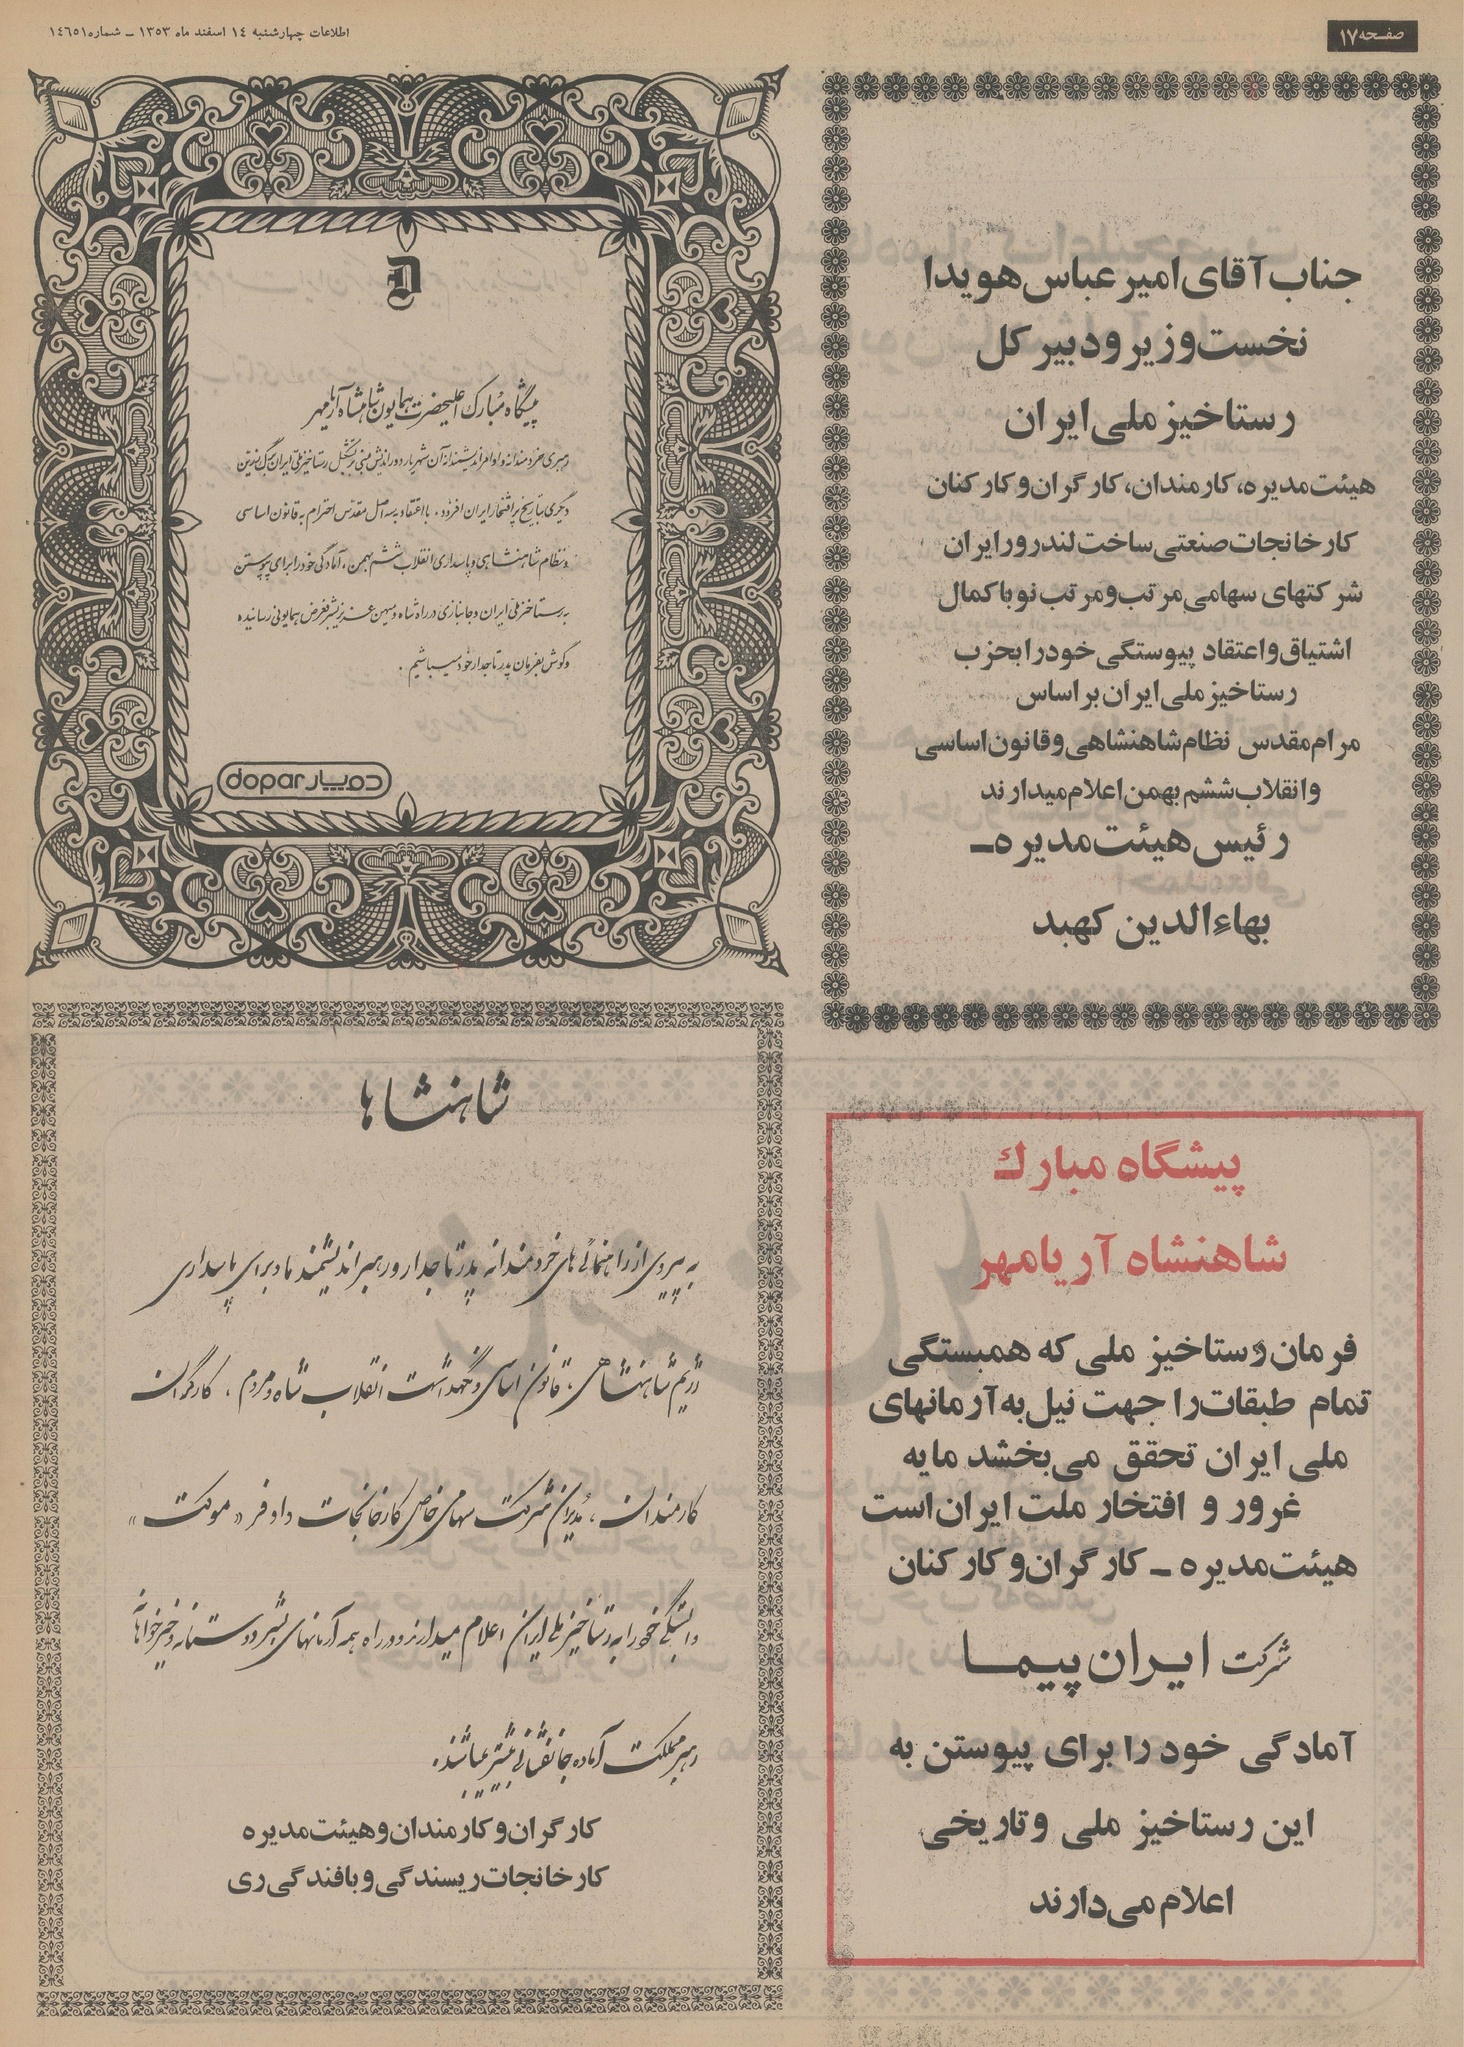 صفحه ۱۷
اطلاعات چهارشنبه ۱۴ اسفند ماه ۱۳۵۳ ـ شماره ۱۴۶۵۱
جناب آقای امیر عباس هویدا
نخست وزیر و دبیر کل
رستاخیز ملی ایران
هیئت مدیره، کارمندان، کارگران و کارکنان
کارخانجات صنعتی ساخت لندرور ایران
شرکتهای سهامی مرتب و مرتب نو با کمال
اشتیاق و اعتقاد پیوستگی خود را بحزب
رستاخیز ملی ایران بر اساس
مرام مقدس نظام شاهنشاهی و قانون اساسی
و انقلاب ششم بهمن اعلام میدارند
رئیس هیئت مدیره ـ
بهاءالدین کهبد
D
پیشگاه مبارک اعلیحضرت همایون شاهنشاه آریامهر
رهبری خردمندانه و اوامر اندیشمندانه آن شهریار دوراندیش مبنی بر تشکیل رستاخیز ملی ایران برگ زرین
دیگری بتاریخ پرافتخار ایران افزود. با اعتقاد به سه اصل مقدس احترام به قانون اساسی
و نظام شاهنشاهی و پاسداری انقلاب ششم بهمن، آمادگی خود را برای پیوستن
به رستاخیز ملی ایران و جانبازی در راه شاه و میهن عزیز بشرفعرض همایونی رسانیده
و گوش بفرمان پدر تاجدار خود میباشیم.
دوپار dopar
پیشگاه مبارک
شاهنشاه آریامهر
فرمان رستاخیز ملی که همبستگی
تمام طبقات را جهت نیل به آرمانهای
ملی ایران تحقق می‌بخشد مایه
غرور و افتخار ملت ایران است
هیئت مدیره ـ کارگران و کارکنان
شرکت ایران پیما
آمادگی خود را برای پیوستن به
این رستاخیز ملی و تاریخی
اعلام می‌دارند
شاهنشاها
به پیروی از راهنمائی‌های خردمندانه پدر تاجدار و رهبر اندیشمند ما و برای پاسداری
رژیم شاهنشاهی، قانون اساسی و نگهداشت انقلاب شاه و مردم، کارگران
کارمندان، مدیران شرکت سهامی خاص کارخانجات داوفر «موکت»
وابستگی خود را به رستاخیز ملی ایران اعلام میدارند و در راه همه آرمانهای بشر دوستانه و خیرخواهانه
رهبر مملکت آماده جانفشانی بیشتر میباشند.
کارگران و کارمندان و هیئت مدیره
کارخانجات ریسندگی و بافندگی ری